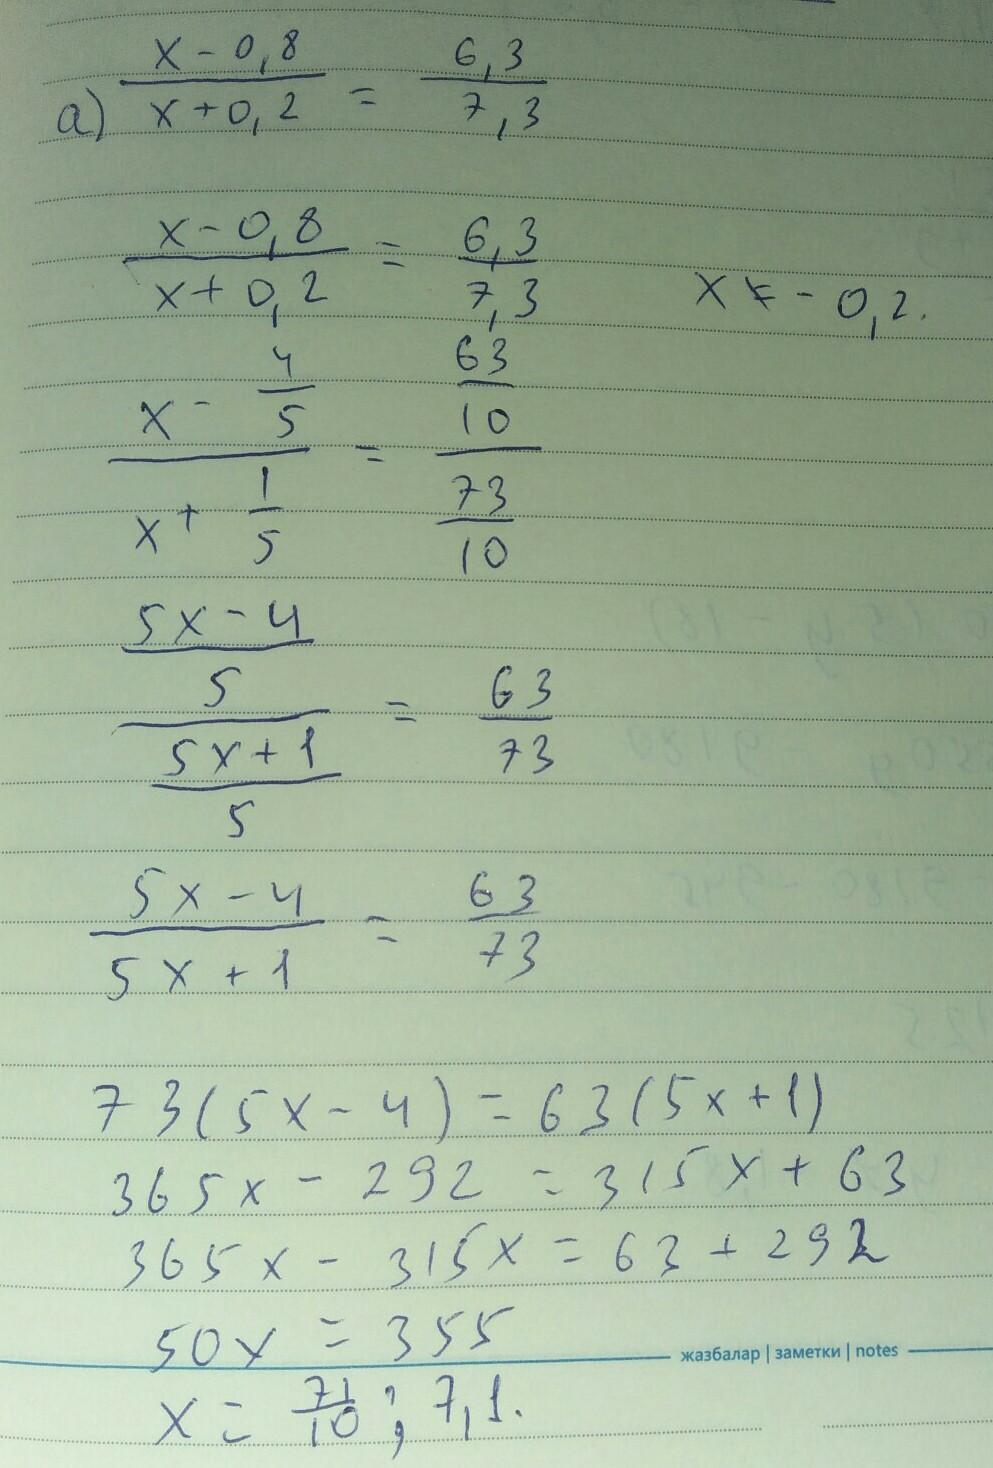 а) (x-0,8)/(x+0,2) = 6,3/7,3
(x-0,8)/(x+0,2) = 6,3/7,3 x ≠ -0,2.
(x - 4/5)/(x + 1/5) = (63/10)/(73/10)
((5x-4)/5)/((5x+1)/5) = 63/73
(5x-4)/(5x+1) = 63/73
73(5x-4)=63(5x+1)
365x - 292 = 315x + 63
365x - 315x = 63 + 292
50x = 355
жазбалар | заметки | notes
x = 71/10; 7,1.